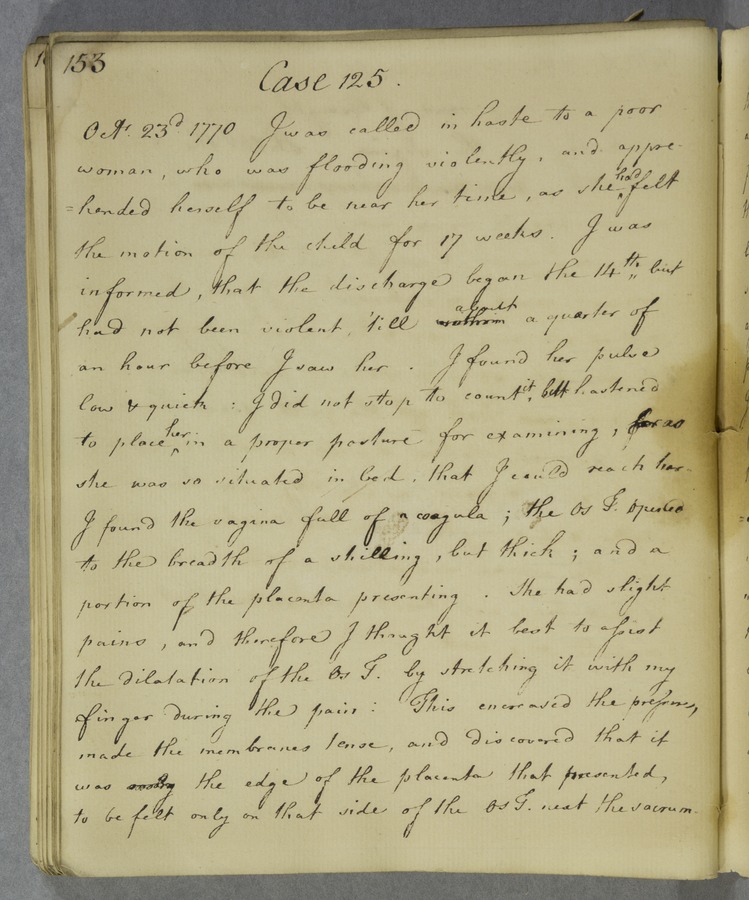 153
Case 125.
Octr. 23d 1770 I was called in haste to a poor
woman, who was flooding violently, and appre-
=hended herself to be near her time, as she had felt
the motion of the child for 17 weeks. I was
informed, that the discharge began the 14th, but
had not been violent, 'till about a quarter of
an hour before I saw her. I found her pulse
low & quick: I did not stop to count it, but hastened
to place her in a proper posture for examining, for as
she was so situated in bed, that I could reach her.
I found the vagina full of coagula; the Os T. opened
to the breadth of a shilling, but thick; and a
portion of the placenta presenting. She had slight
pains, and therefore I thought it best to assist
the dilatation of the Os T. by stretching it with my
finger during the pain: This encreased the pressure,
made the membranes tense, and discovered that it
was the edge of the placenta that presented,
to be felt only on that side of the Os T. next the sacrum.